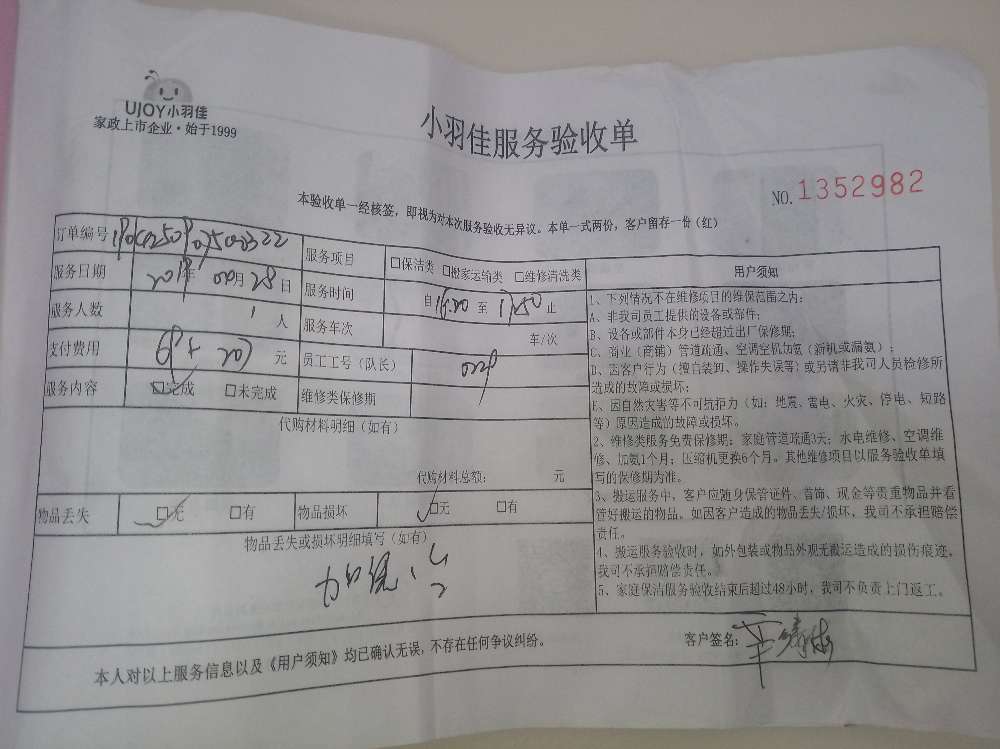 UJOY小羽佳
家政上市企业·始于1999
小羽佳服务验收单
NO.1352982
本验收单一经核签，即视为对本次服务验收无异议。本单一式两份，客户留存一份（红）
订单编号
服务项目 □保洁类 □搬家运输类 □维修清洗类
服务日期 年 月28日
服务时间 自 至 止
服务人数 1 人
服务车次 车/次
支付费用 元
员工工号（队长）
服务内容 □完成 □未完成
维修类保修期
代购材料明细（如有）
代购材料总额： 元
物品丢失 □无 □有
物品损坏 □无 □有
物品丢失或损坏明细填写（如有）
用户须知
1、下列情况不在维修项目的维保范围之内：
A、非我司员工提供的设备或部件；
B、设备或部件本身已经超过出厂保修期；
C、商业（商铺）管道疏通、空调空机加氨（新机或漏氨）；
D、因客户行为（擅自装卸、操作失误等）或另请非我司人员检修所
造成的故障或损坏；
E、因自然灾害等不可抗拒力（如：地震、雷电、火灾、停电、短路
等）原因造成的故障或损坏。
2、维修类服务免费保修期：家庭管道疏通3天；水电维修、空调维
修、加氨1个月；压缩机更换6个月。其他维修项目以服务验收单填
写的保修期为准。
3、搬运服务中，客户应随身保管证件、首饰、现金等贵重物品并看
管好搬运的物品。如因客户造成的物品丢失/损坏，我司不承担赔偿
责任。
4、搬运服务验收时，如外包装或物品外观无搬运造成的损伤痕迹，
我司不承担赔偿责任。
5、家庭保洁服务验收结束后超过48小时，我司不负责上门返工。
本人对以上服务信息以及《用户须知》均已确认无误，不存在任何争议纠纷。
客户签名：